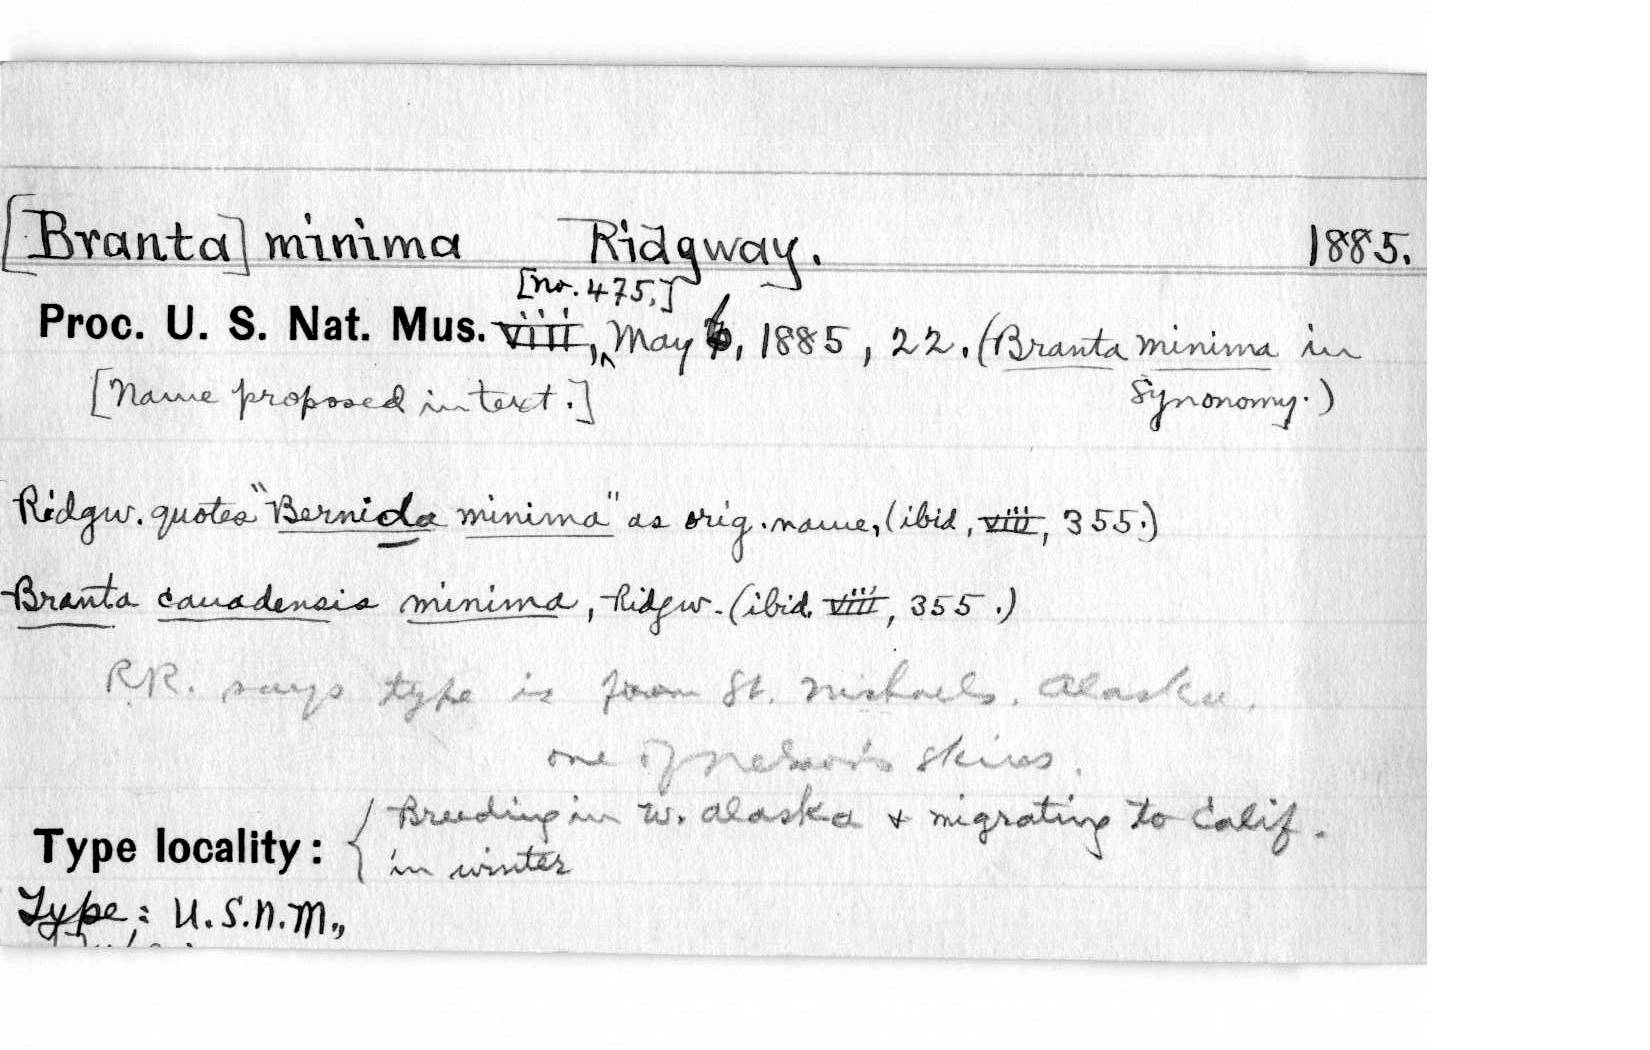 [Branta] minima Ridgway. 1885.
[no. 475.]
Proc. U. S. Nat. Mus. viii, May 6, 1885, 22. (Branta minima in
[Name proposed in text.] Synonomy.)
Ridgw. quotes "Bernicla minima" as orig. name, (ibid, viii, 355.)
Branta canadensis minima, Ridgw. (ibid. viii, 355.)
R.R. says type is from St. Michaels, Alaska,
one of Nelson's skins.
Type locality: { Breeding in W. Alaska & migrating to Calif.
in winter
Type: U.S.N.M.,